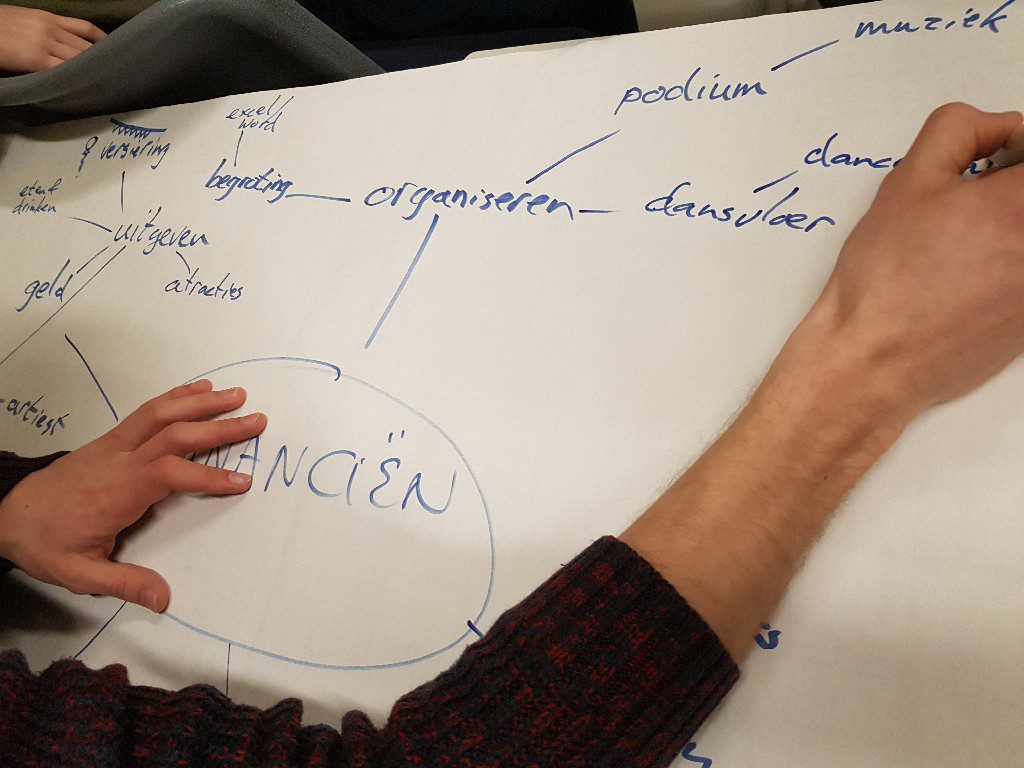 muziek
podium
excel/
word
versiering
begroting
organiseren
dansvloer
eten &
drinken
uitgeven
geld
atracties
artiest
NANCIËN
is